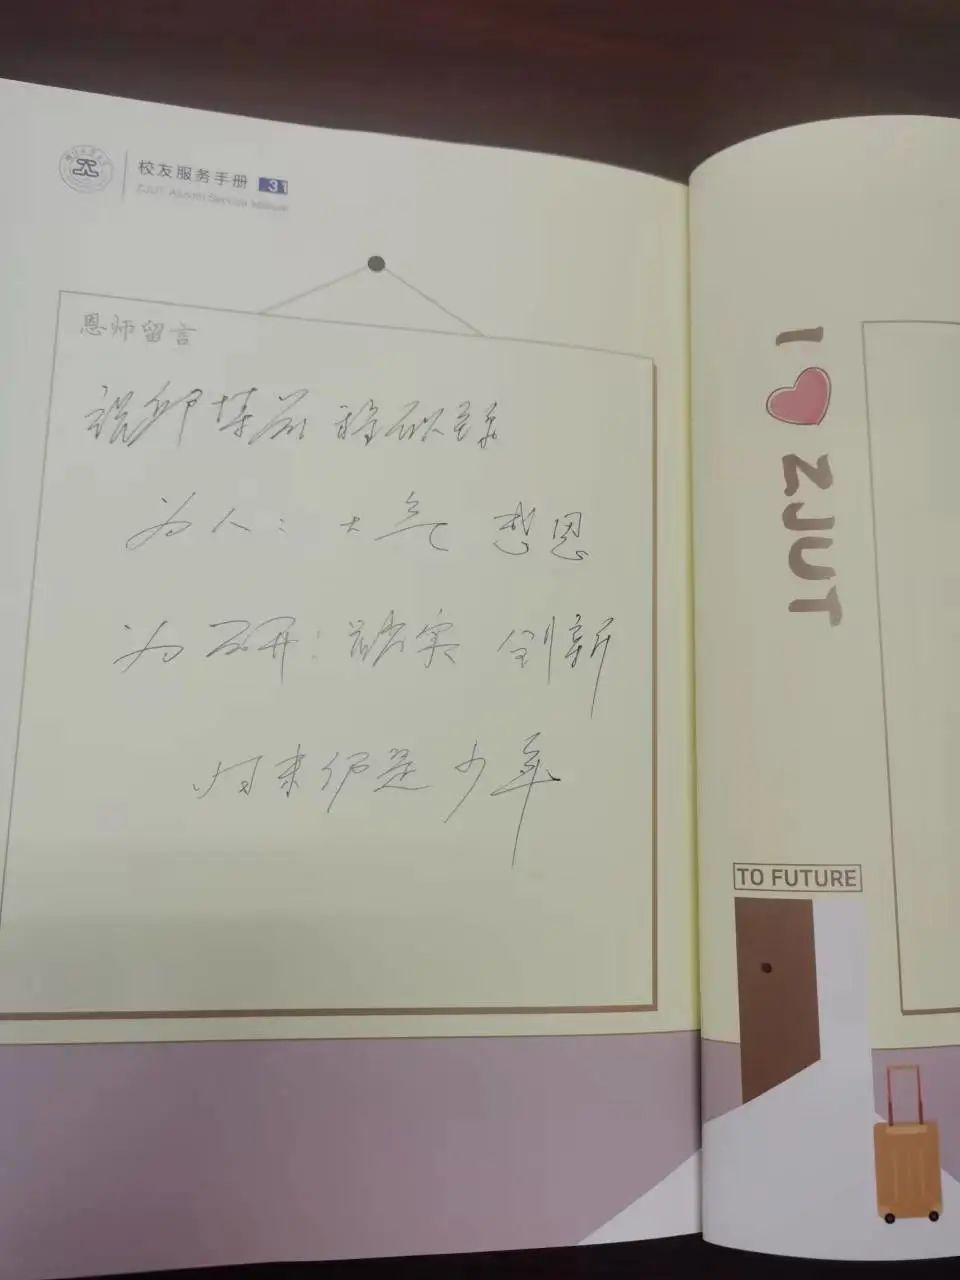 校友服务手册 31
ZJUT Alumni Service Manual
恩师留言
为人：大气 感恩
为研：踏实 创新
归来仍是少年
I ZJUT
TO FUTURE